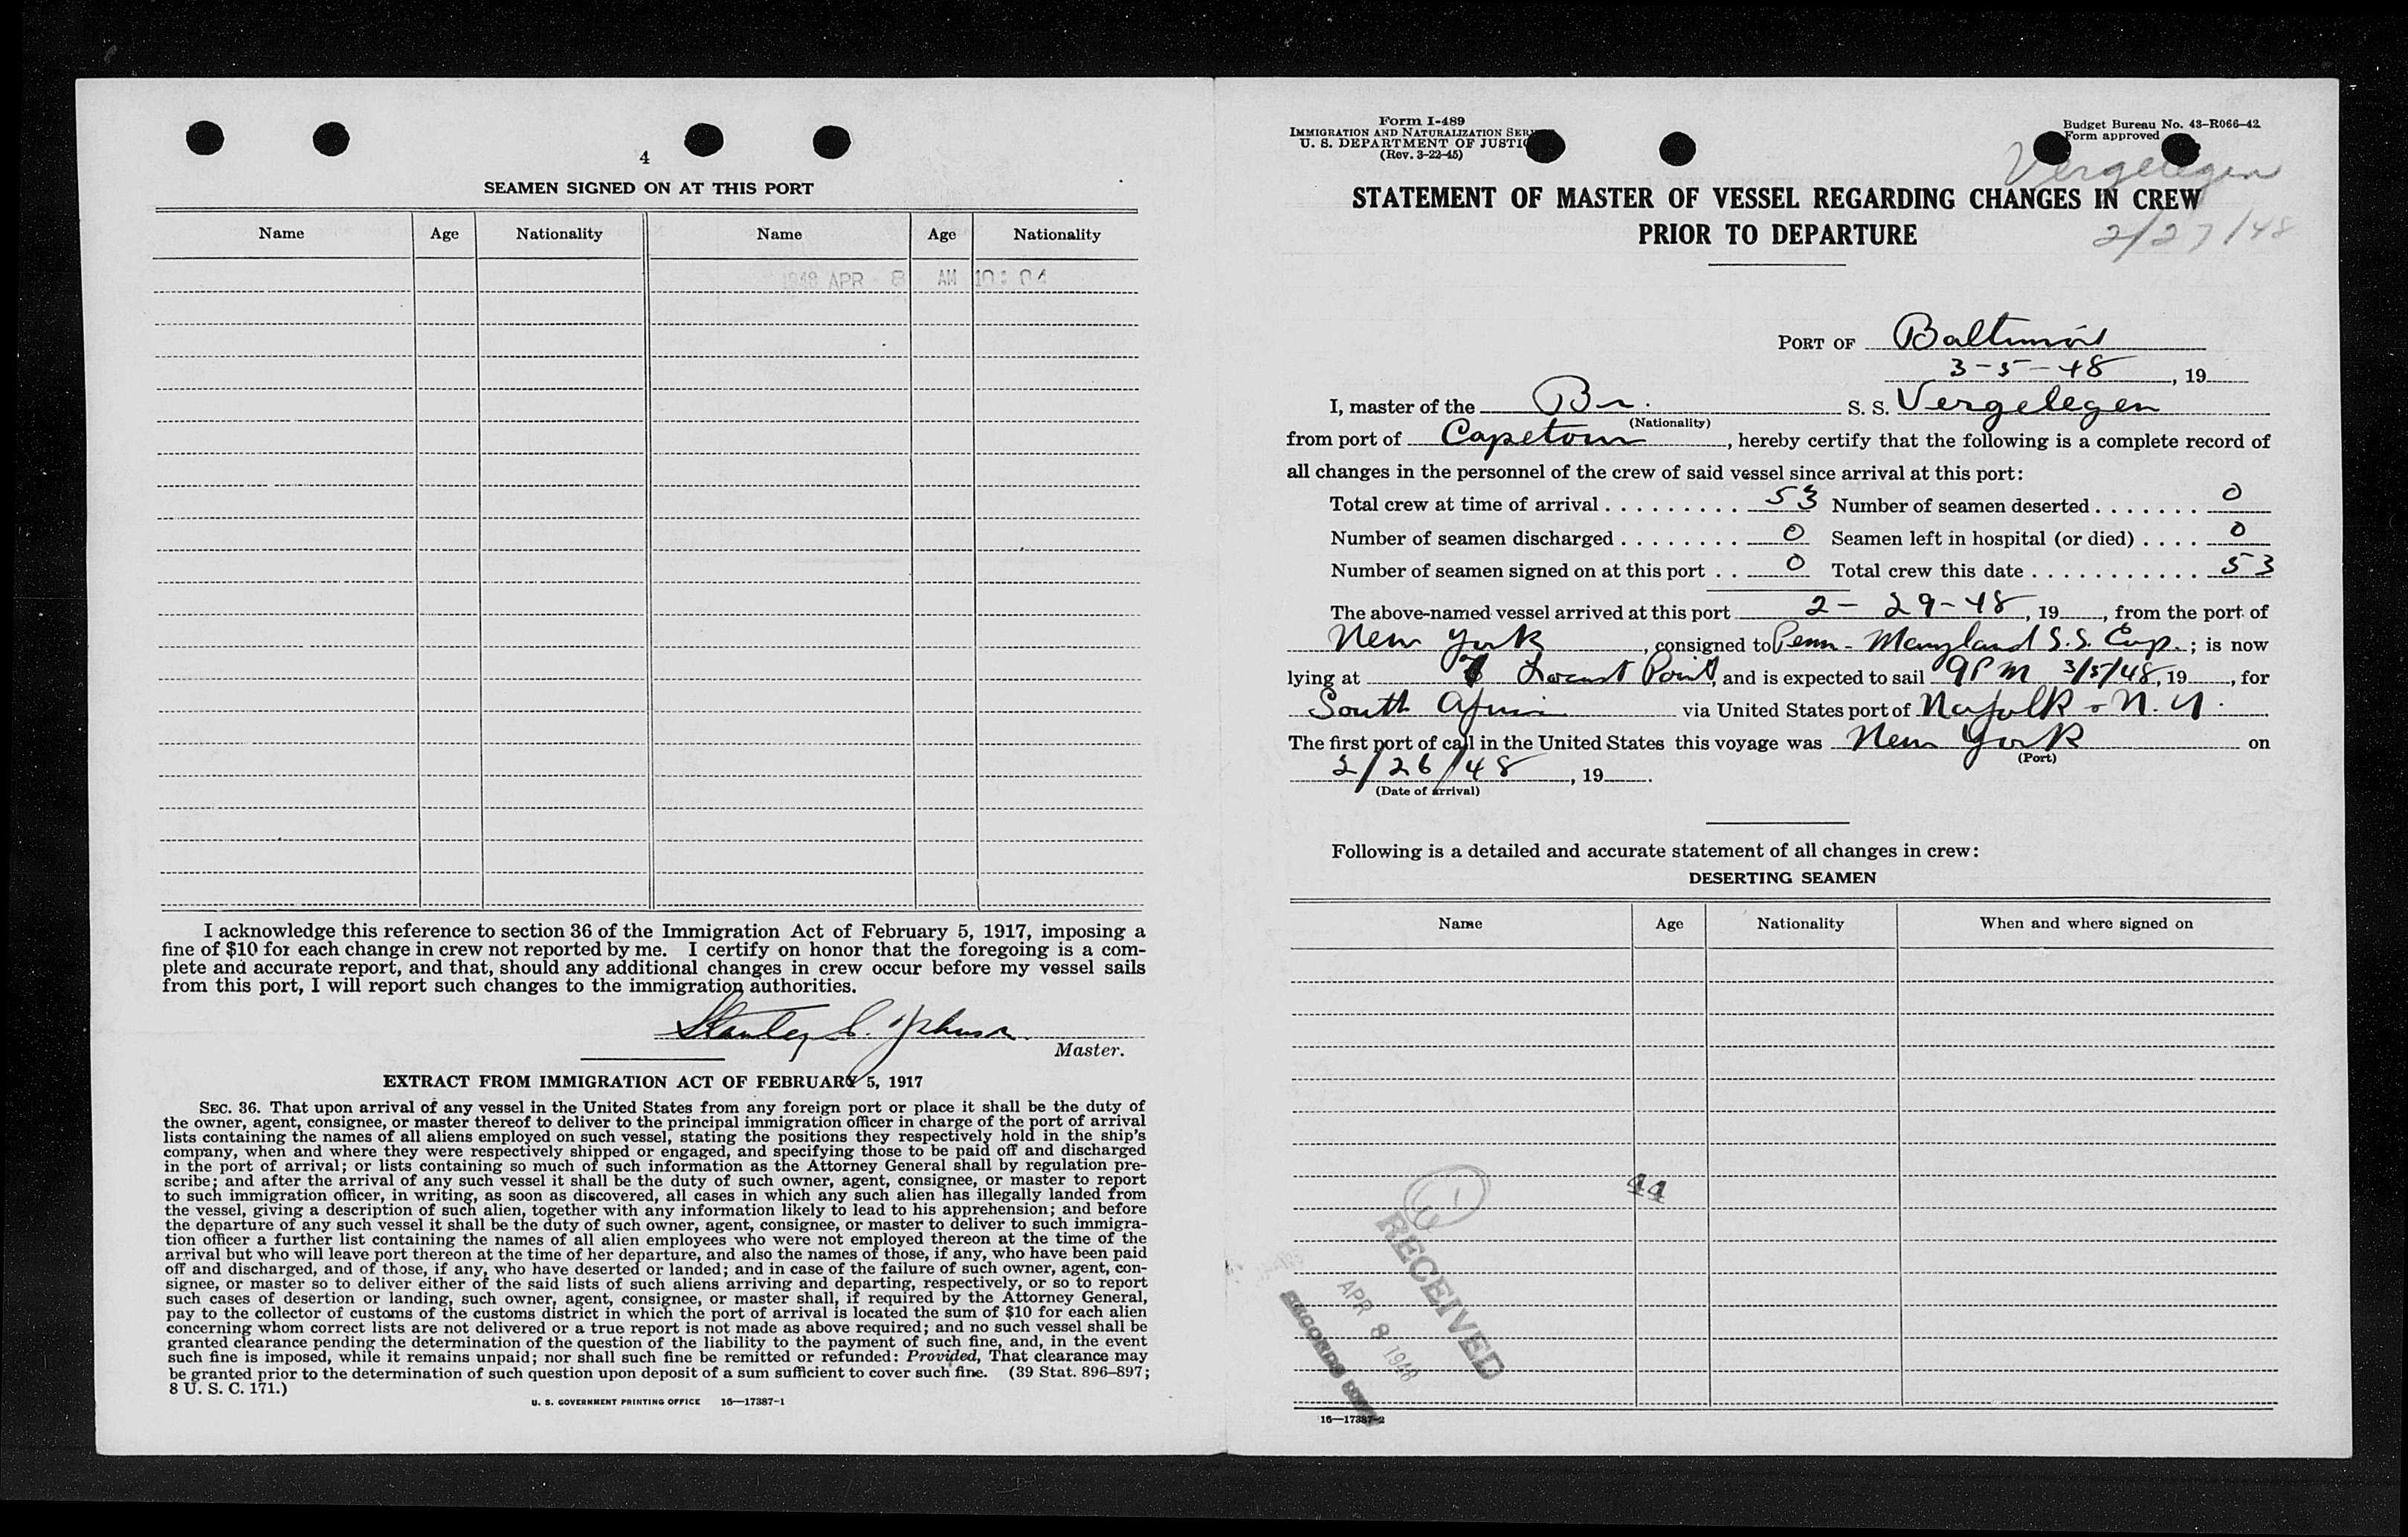 4
SEAMEN SIGNED ON AT THIS PORT
Name Age Nationality Name Age Nationality
1948 APR - 8 AM 10: 04
I acknowledge this reference to section 36 of the Immigration Act of February 5, 1917, imposing a
fine of $10 for each change in crew not reported by me. I certify on honor that the foregoing is a com-
plete and accurate report, and that, should any additional changes in crew occur before my vessel sails
from this port, I will report such changes to the immigration authorities.
Stanley S. Johnson
Master.
EXTRACT FROM IMMIGRATION ACT OF FEBRUARY 5, 1917
SEC. 36. That upon arrival of any vessel in the United States from any foreign port or place it shall be the duty of
the owner, agent, consignee, or master thereof to deliver to the principal immigration officer in charge of the port of arrival
lists containing the names of all aliens employed on such vessel, stating the positions they respectively hold in the ship's
company, when and where they were respectively shipped or engaged, and specifying those to be paid off and discharged
in the port of arrival; or lists containing so much of such information as the Attorney General shall by regulation pre-
scribe; and after the arrival of any such vessel it shall be the duty of such owner, agent, consignee, or master to report
to such immigration officer, in writing, as soon as discovered, all cases in which any such alien has illegally landed from
the vessel, giving a description of such alien, together with any information likely to lead to his apprehension; and before
the departure of any such vessel it shall be the duty of such owner, agent, consignee, or master to deliver to such immigra-
tion officer a further list containing the names of all alien employees who were not employed thereon at the time of the
arrival but who will leave port thereon at the time of her departure, and also the names of those, if any, who have been paid
off and discharged, and of those, if any, who have deserted or landed; and in case of the failure of such owner, agent, con-
signee, or master so to deliver either of the said lists of such aliens arriving and departing, respectively, or so to report
such cases of desertion or landing, such owner, agent, consignee, or master shall, if required by the Attorney General,
pay to the collector of customs of the customs district in which the port of arrival is located the sum of $10 for each alien
concerning whom correct lists are not delivered or a true report is not made as above required; and no such vessel shall be
granted clearance pending the determination of the question of the liability to the payment of such fine, and, in the event
such fine is imposed, while it remains unpaid; nor shall such fine be remitted or refunded: Provided, That clearance may
be granted prior to the determination of such question upon deposit of a sum sufficient to cover such fine. (39 Stat. 896–897;
8 U. S. C. 171.)
U. S. GOVERNMENT PRINTING OFFICE 16—17387-1
Form I-489
IMMIGRATION AND NATURALIZATION SER
U. S. DEPARTMENT OF JUSTIC
(Rev. 3-22-45)
Budget Bureau No. 43-R066-42
Form approved
Vergelegen
STATEMENT OF MASTER OF VESSEL REGARDING CHANGES IN CREW
PRIOR TO DEPARTURE
2/27/48
PORT OF Baltimore
3-5-48, 19
I, master of the Br. S. S. Vergelegen
(Nationality)
from port of Capetown, hereby certify that the following is a complete record of
all changes in the personnel of the crew of said vessel since arrival at this port:
Total crew at time of arrival 53 Number of seamen deserted 0
Number of seamen discharged 0 Seamen left in hospital (or died) 0
Number of seamen signed on at this port 0 Total crew this date 53
The above-named vessel arrived at this port 2-29-48, 19, from the port of
New York, consigned to Penn-Maryland S.S. Corp.; is now
lying at Locust Point, and is expected to sail 9 PM 3/5/48, 19, for
South Africa via United States port of Norfolk - N.Y.
The first port of call in the United States this voyage was New York on
(Port)
2/26/48, 19.
(Date of arrival)
Following is a detailed and accurate statement of all changes in crew:
DESERTING SEAMEN
Name Age Nationality When and where signed on
44
RECEIVED
APR 8 1948
RECORDS
16—17387-2